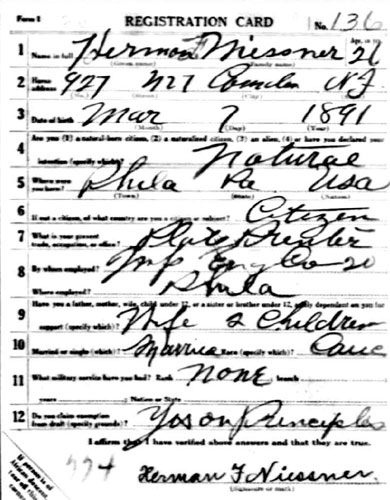 Form 1 REGISTRATION CARD No. 136
1 Name in full Herman F Niessner 26
(Given name) (Family name) Age, in yrs.
2 Home address 927 Camden NJ
(No.) (Street) (City) (State)
3 Date of birth Mar 7 1891
(Month) (Day) (Year)
4 Are you (1) a natural-born citizen, (2) a naturalized citizen, (3) an alien, (4) or have you declared your
intention (specify which)? Natural
5 Where were you born? Phila Pa USA
(Town) (State) (Nation)
6 If not a citizen, of what country are you a citizen or subject? Citizen
7 What is your present trade, occupation, or office? Plate Printer
8 By whom employed? Co
Where employed? Phila
9 Have you a father, mother, wife, child under 12, or a sister or brother under 12, solely dependent on you for
support (specify which)? Wife 2 Children
10 Married or single (which)? Married Race (specify which)? Cauc
11 What military service have you had? Rank NONE ; branch
years ; Nation or State
12 Do you claim exemption from draft (specify grounds)? Yes on Principles
I affirm that I have verified above answers and that they are true.
Herman F Niessner
(Signature or mark)
If person is of